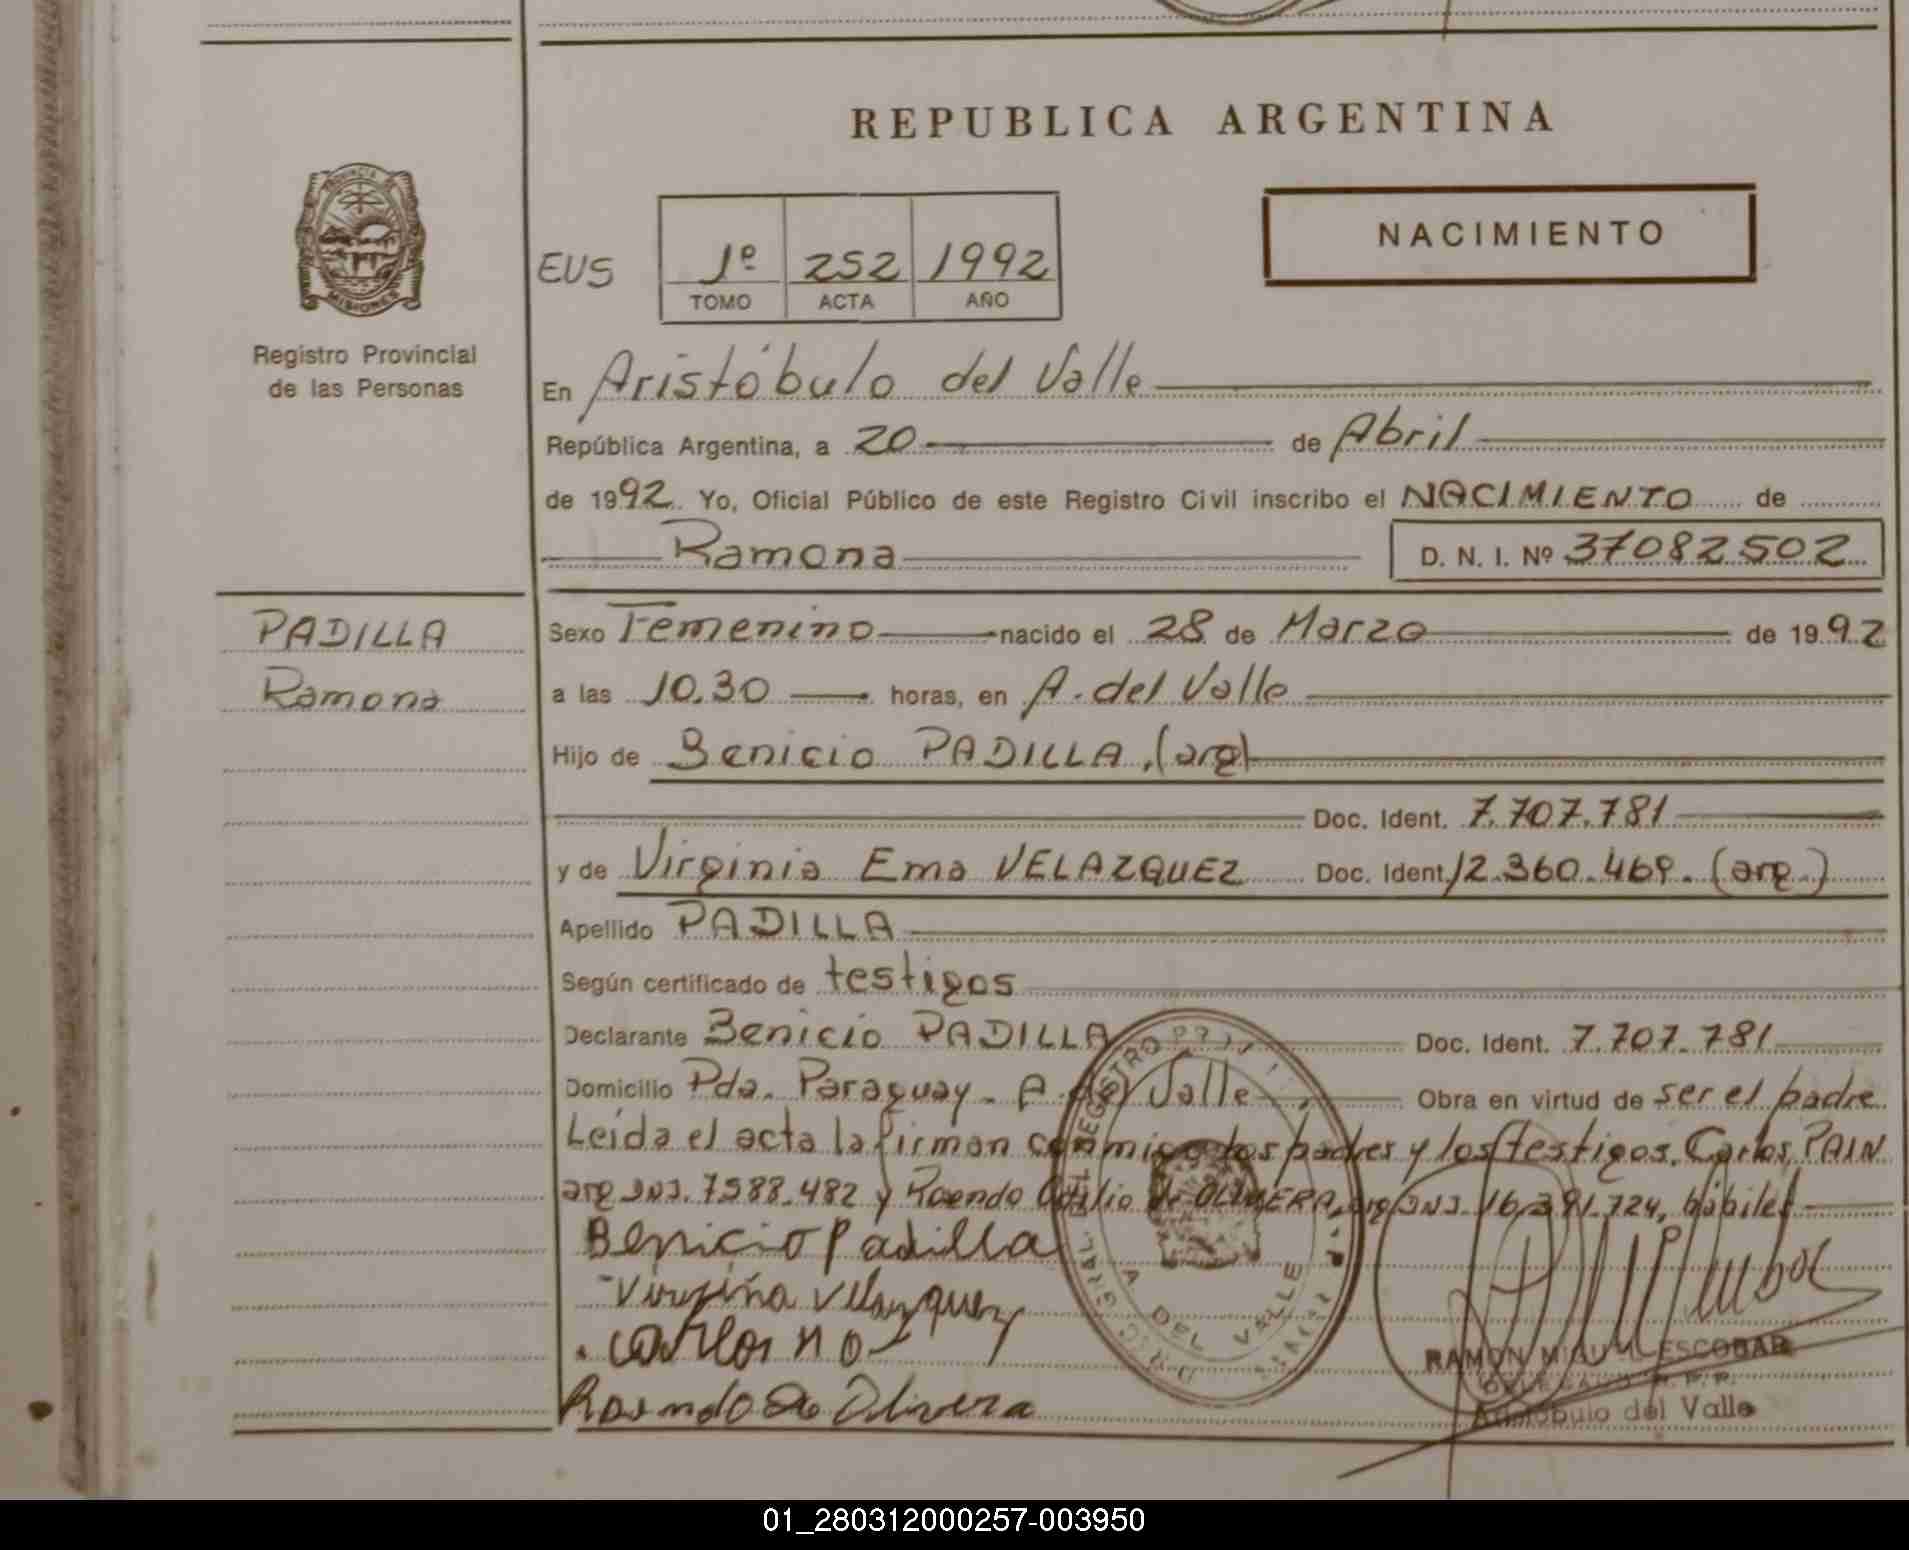 REPUBLICA ARGENTINA
PROVINCIA DE
MISIONES
Registro Provincial
de las Personas
NACIMIENTO
EUS
1º 252 1992
TOMO ACTA AÑO
En Aristóbulo del Valle
República Argentina, a 20 de Abril
de 1992. Yo, Oficial Público de este Registro Civil inscribo el NACIMIENTO de
Ramona D. N. I. Nº 37082502
PADILLA
Ramona
Sexo Femenino nacido el 28 de Marzo de 1992
a las 10.30 horas, en A. del Valle
Hijo de Benicio PADILLA, (arg)
Doc. Ident. 7.707.781
y de Virginia Ema VELAZQUEZ Doc. Ident. 12.360.469. (arg.)
Apellido PADILLA
Según certificado de testigos
Declarante Benicio PADILLA Doc. Ident. 7.707.781
Domicilio Pda. Paraguay - A. del Valle Obra en virtud de ser el padre
Leída el acta la firman conmigo los padres y los testigos. Carlos PAIN
arg DNI. 7588.482 y Rosendo de OLIVERA, arg DNI. 16.391.724, hábiles
Benicio Padilla
Virginia Velazquez
Carlos
Rosendo De Olivera
A DEL VALLE
RAMON MIGUEL ESCOBAR
DELEGADO R. P. P.
Aristobulo del Valle
01_280312000257-003950